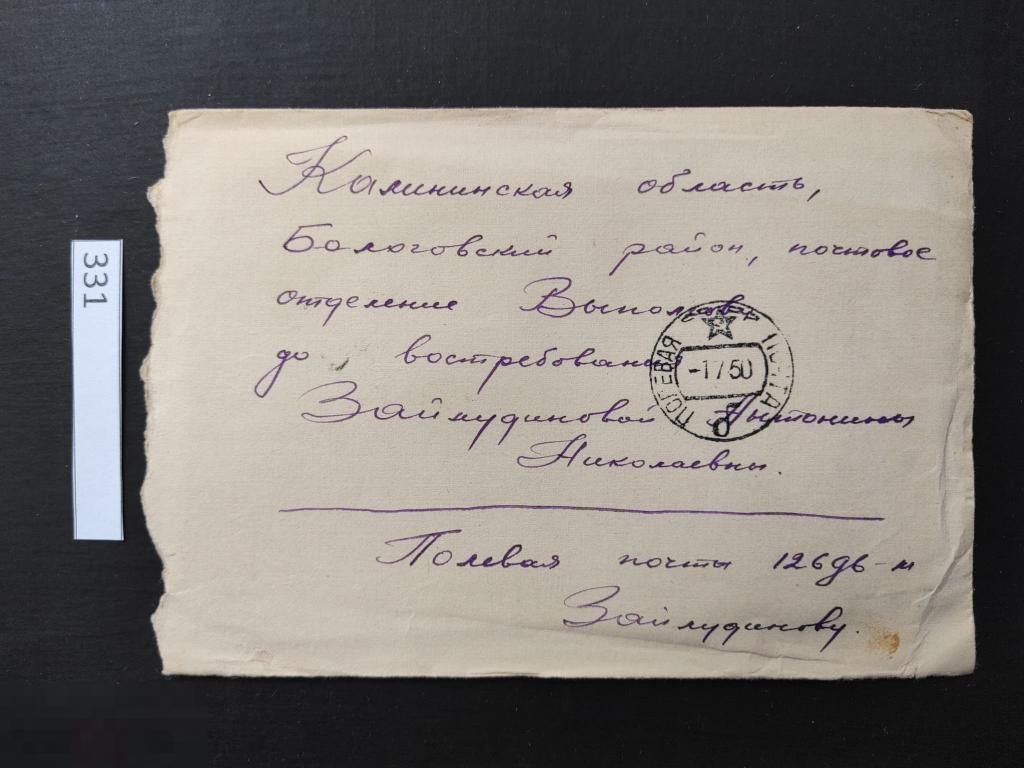 331
Калининская область,
Бологовский район, почтовое
отделение Выползово
до востребования
Займудиновой Антонины
Николаевны.
ПОЛЕВАЯ ПОЧТА
-1 7 50
б
Полевая почта 126
Займудинову.